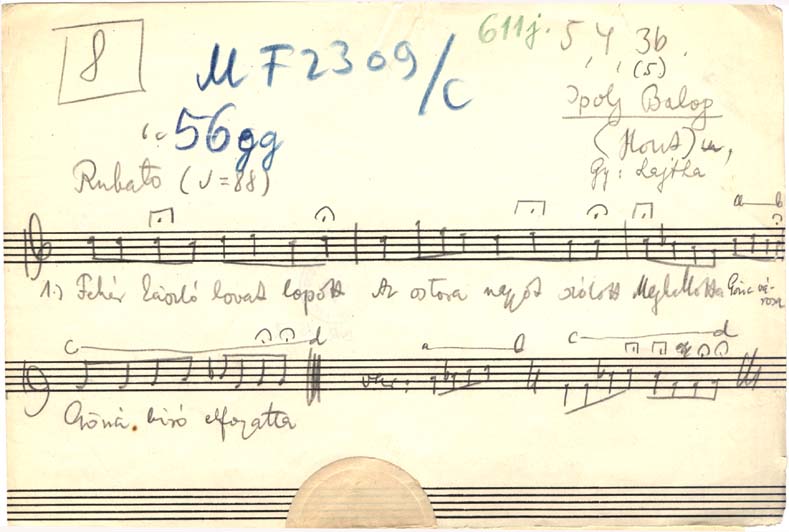 8
MF2309/c
611j. 5 4 3b
(5)
56gg
Ipoly Balog
(Hont) m,
Gy: Lajtha
Rubato (♩=88)
a b
1.) Fehér László lovat lopott Az ostora nagyot szólott Meglátta Gönc városa
c d
a b
c d
var:
Gönci biró elfogatta